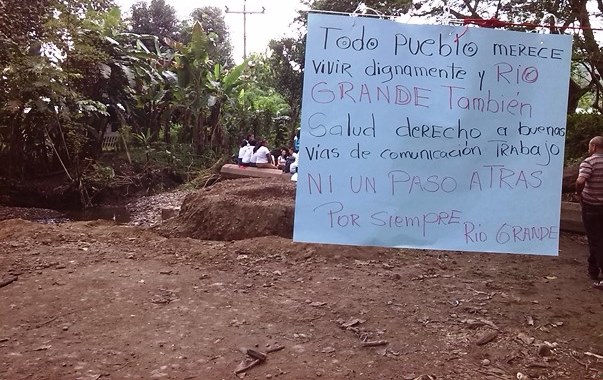 Todo Pueblo merece
vivir dignamente y Rio
Grande También
Salud derecho a buenas
vías de comunicación Trabajo
NI UN PASO ATRAS
Por siempre
Rio GRANDE